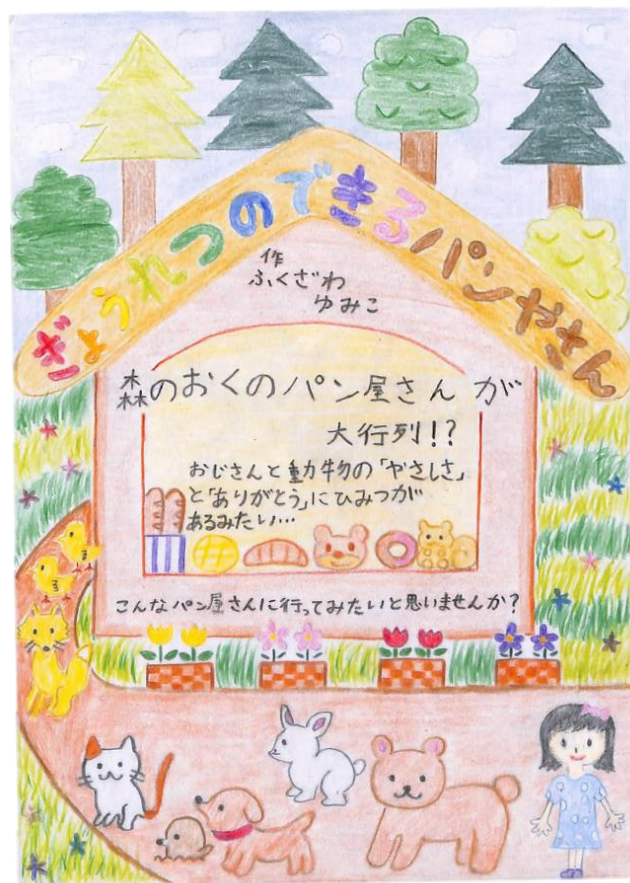 ぎょうれつのできるパンやさん
作
ふくざわ
ゆみこ
森のおくのパン屋さんが
大行列!?
おじさんと動物の「やさしさ」
と「ありがとう」にひみつが
あるみたい…
こんなパン屋さんに行ってみたいと思いませんか?